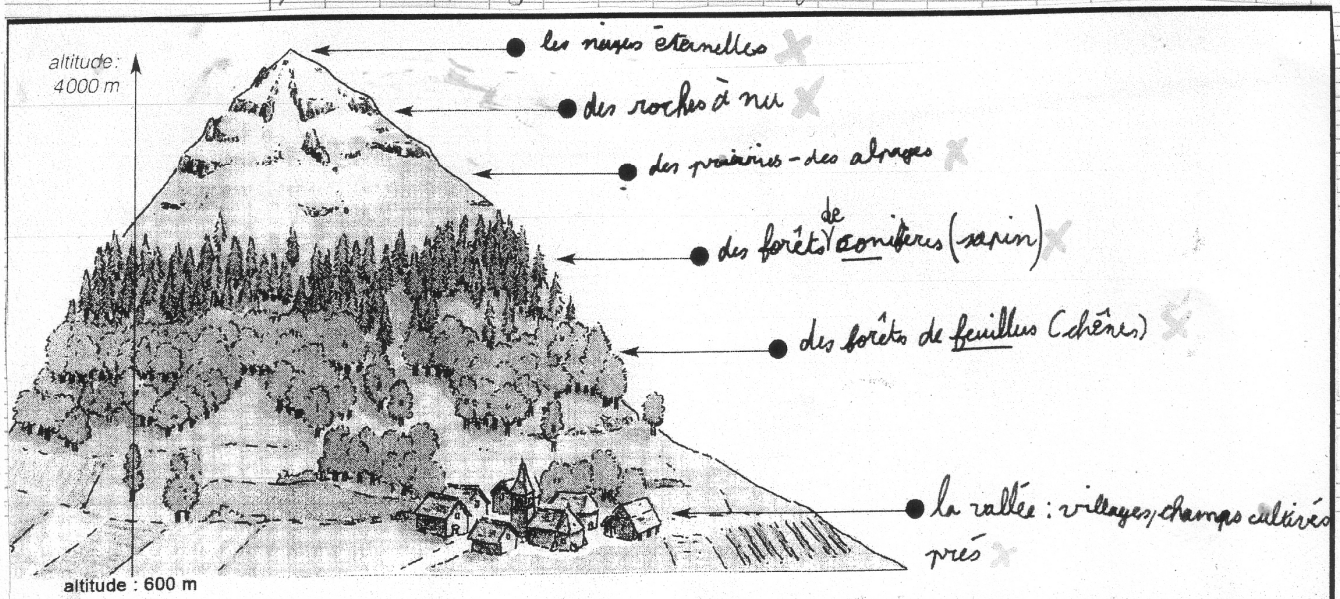 les neiges éternelles
altitude:
4000 m
des roches à nu
des prairies - des alpages
de
des forêts conifères (sapin)
des forêts de feuillus (chênes)
la vallée : villages, champs cultivés
prés
altitude : 600 m